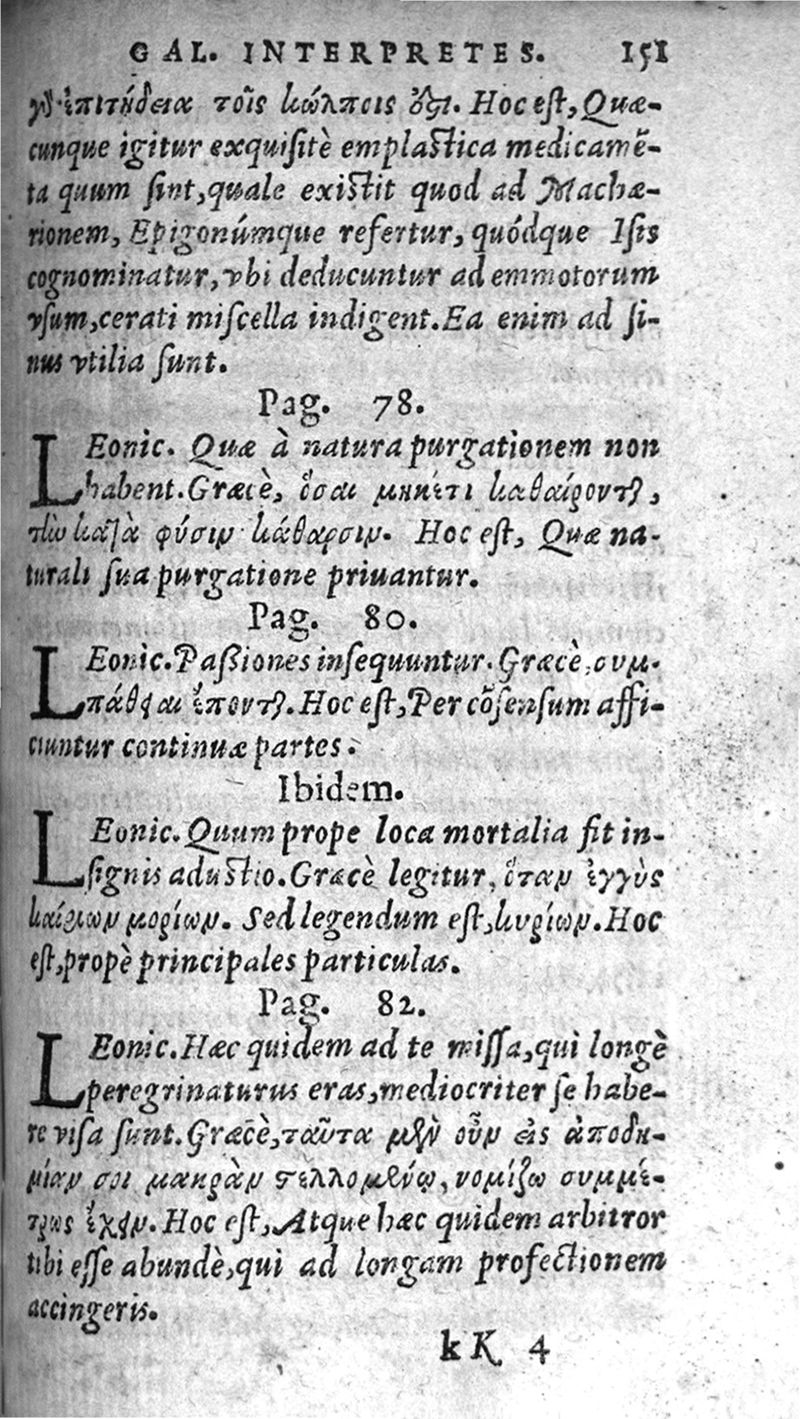 GAL. INTERPRETES. 151
γδ ἐπιτήδεια τοῖς κόλποις ὄντα. Hoc eſt, Quæ-
cunque igitur exquiſitè emplaſtica medicamẽ-
ta quum ſint, quale exiſtit quod ad Machæ-
rionem, Epigonúmque refertur, quódque Iſis
cognominatur, vbi deducuntur ad emmotorum
vſum, cerati miſcella indigent. Ea enim ad ſi-
nus vtilia ſunt.
Pag. 78.
LEonic. Quæ à natura purgationem non
habent. Græcè, ὅσαι μηκέτι καθαίρονται,
τὴν κατὰ φύσιν κάθαρσιν. Hoc eſt, Quæ na-
turali ſua purgatione priuantur.
Pag. 80.
LEonic. Paßiones inſequuntur. Græcè, συμ-
πάθειαι ἕπονται. Hoc eſt, Per cõſenſum affi-
ciuntur continuæ partes.
Ibidem.
LEonic. Quum prope loca mortalia fit in-
ſignis aduſtio. Græcè legitur, ὅταν ἐγγὺς
καίριων μορίων. Sed legendum eſt, κυρίων. Hoc
eſt, propè principales particulas.
Pag. 82.
LEonic. Hæc quidem ad te miſſa, qui longè
peregrinaturus eras, mediocriter ſe habe-
re viſa ſunt. Græcè, ταῦτα μὲν οὖν εἰς ἀποδη-
μίαν σοι μακρὰν στελλομένῳ, νομίζω συμμέ-
τρως ἔχειν. Hoc eſt, Atque hæc quidem arbitror
tibi eſſe abundè, qui ad longam profectionem
accingeris.
kK 4